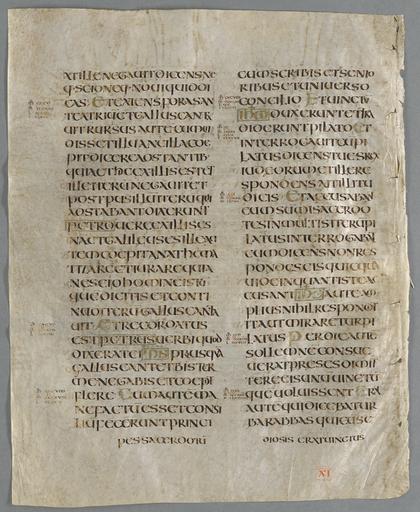 ATILLENEGAUITDICENSNE
Q·SCIONEQ·NOUIQUIDDI
CAS ETEXIENSFORASAN
TEATRIUETGALLUSCANTA
UITRURSUSAUTECUMUI
DISSETILLUANCILLACOE
PITDICERE
QUIAETHICEXILLISEST
ILLEITERUNEGAUITET
POSTPUSILLUITERUQUI
ADSTABANTDIXERUNT
PETROUEREEXILLISES
NAETGALILEUSESILLEAU
TEMCOEPITANATHEMA
TIZAREETIURAREQUIA
NESCIOHOMINEISTU
QUEDICITISETCONTI
NUOITERUGALLUSCANTA
UIT ETRECORDATUS
ESTPETRUSUERBIQUOD
DIXERATEIIHSPRIUSQUA
GALLUSCANTETBISTER
MENEGABISETCOEPIT
FLERE
NEFACTUESSETCONSI
LIUFECERUNTPRINCI
PESSACERDOTU
CUMSCRIBISETSENIO
RIBUSETUNIUERSO
CONCILIO ETUINCTU
IHMDUXERUNTETTRA
DIDERUNTPILATO ET
INTERROGAUITEUPI
LATUSDICENSTUESREX
IUDEORUMETILLERE
SPONDENSAITILLITU
DICIS ETACCUSABAN
EUMSUMMISACERDO
TESINMULTISITERUPI
LATUSINTERROGABAT
EUMDICENSNONRES
PONDESEISQUICQUA
UIDEINQUANTISTEAC
CUSANTIHSAUTEAM
PLIUSNIHILRESPONDIT
ITAUTMIRARETURPI
LATUS PERDIEAUTE
SOLLEMNECONSUE
UERATPRESESDIMIT
TEREEISUNUUINCTU
QUEUOLUISSENT ERA
AUTEQUIDICEBATUR
BARABBASQUICUSE
DIOSISERATUINCTUS
XI